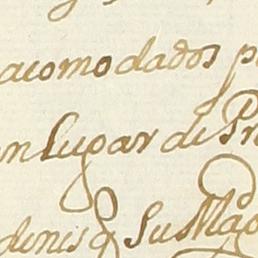 acomodados p
en Lugar de Pr
denes q Su Mag